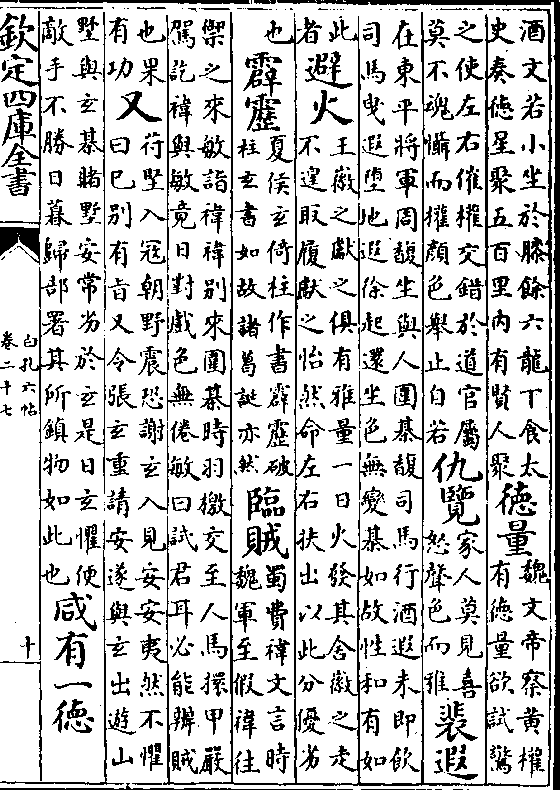 酒文若小坐於膝餘六龍下食太
史奏德星聚五百里內有賢人聚
德量
魏文帝察黃權
有德量欲試驚
之使左右催權交錯於道官屬
莫不魂懾而權顏色舉止自若
仇覽
家人莫見喜
怒聲色而雅
裴遐
在東平將軍周馥坐與人圍棊馥司馬行酒遐未即飲
司馬曳遐墮地遐徐起還坐色無變棊如故性和有如
此
者
避火
王徽之獻之俱有雅量一日火發其舍徽之走
不遑取履獻之怡然命左右扶出以此分優劣
也
霹靂
夏侯玄倚柱作書霹靂破
柱玄書如故諸葛誕亦然
臨賊
蜀費禕文言時
魏軍至假禕往
禦之來敏詣禕禕別來圍棊時羽檄交至人馬擐甲嚴
駕訖禕與敏竟日對戲色無倦敏曰試君耳必能辨賊
也果
有功
又
苻堅入寇朝野震恐謝玄入見安安夷然不懼
曰已別有旨又令張玄重請安遂與玄出遊山
墅與玄棊賭墅安常劣於玄是日玄懼便
敵手不勝日暮歸部署其所鎮物如此也
咸有一德
欽定四庫全書
白孔六帖
卷二十七
十